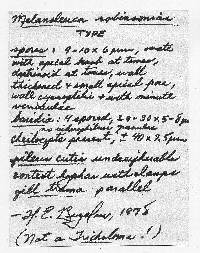 Melanoleuca robinsoniae
TYPE
spores: 9-10 x 6 µm, ovate
with apical beak at times,
dextrinoid at times, wall
thickened + small apical pore,
wall cyanophilic + with minute
verruculae
basidia: 4 spored, 28-30 x 5-8 µm
as siderophilous granulose
cheilocysts present, ± 40 x 7.5 µm
pileus cutis undecipherable
context hyphae with clamps
gill trama parallel
— H.E. 1978
(Not a Tricholoma!)